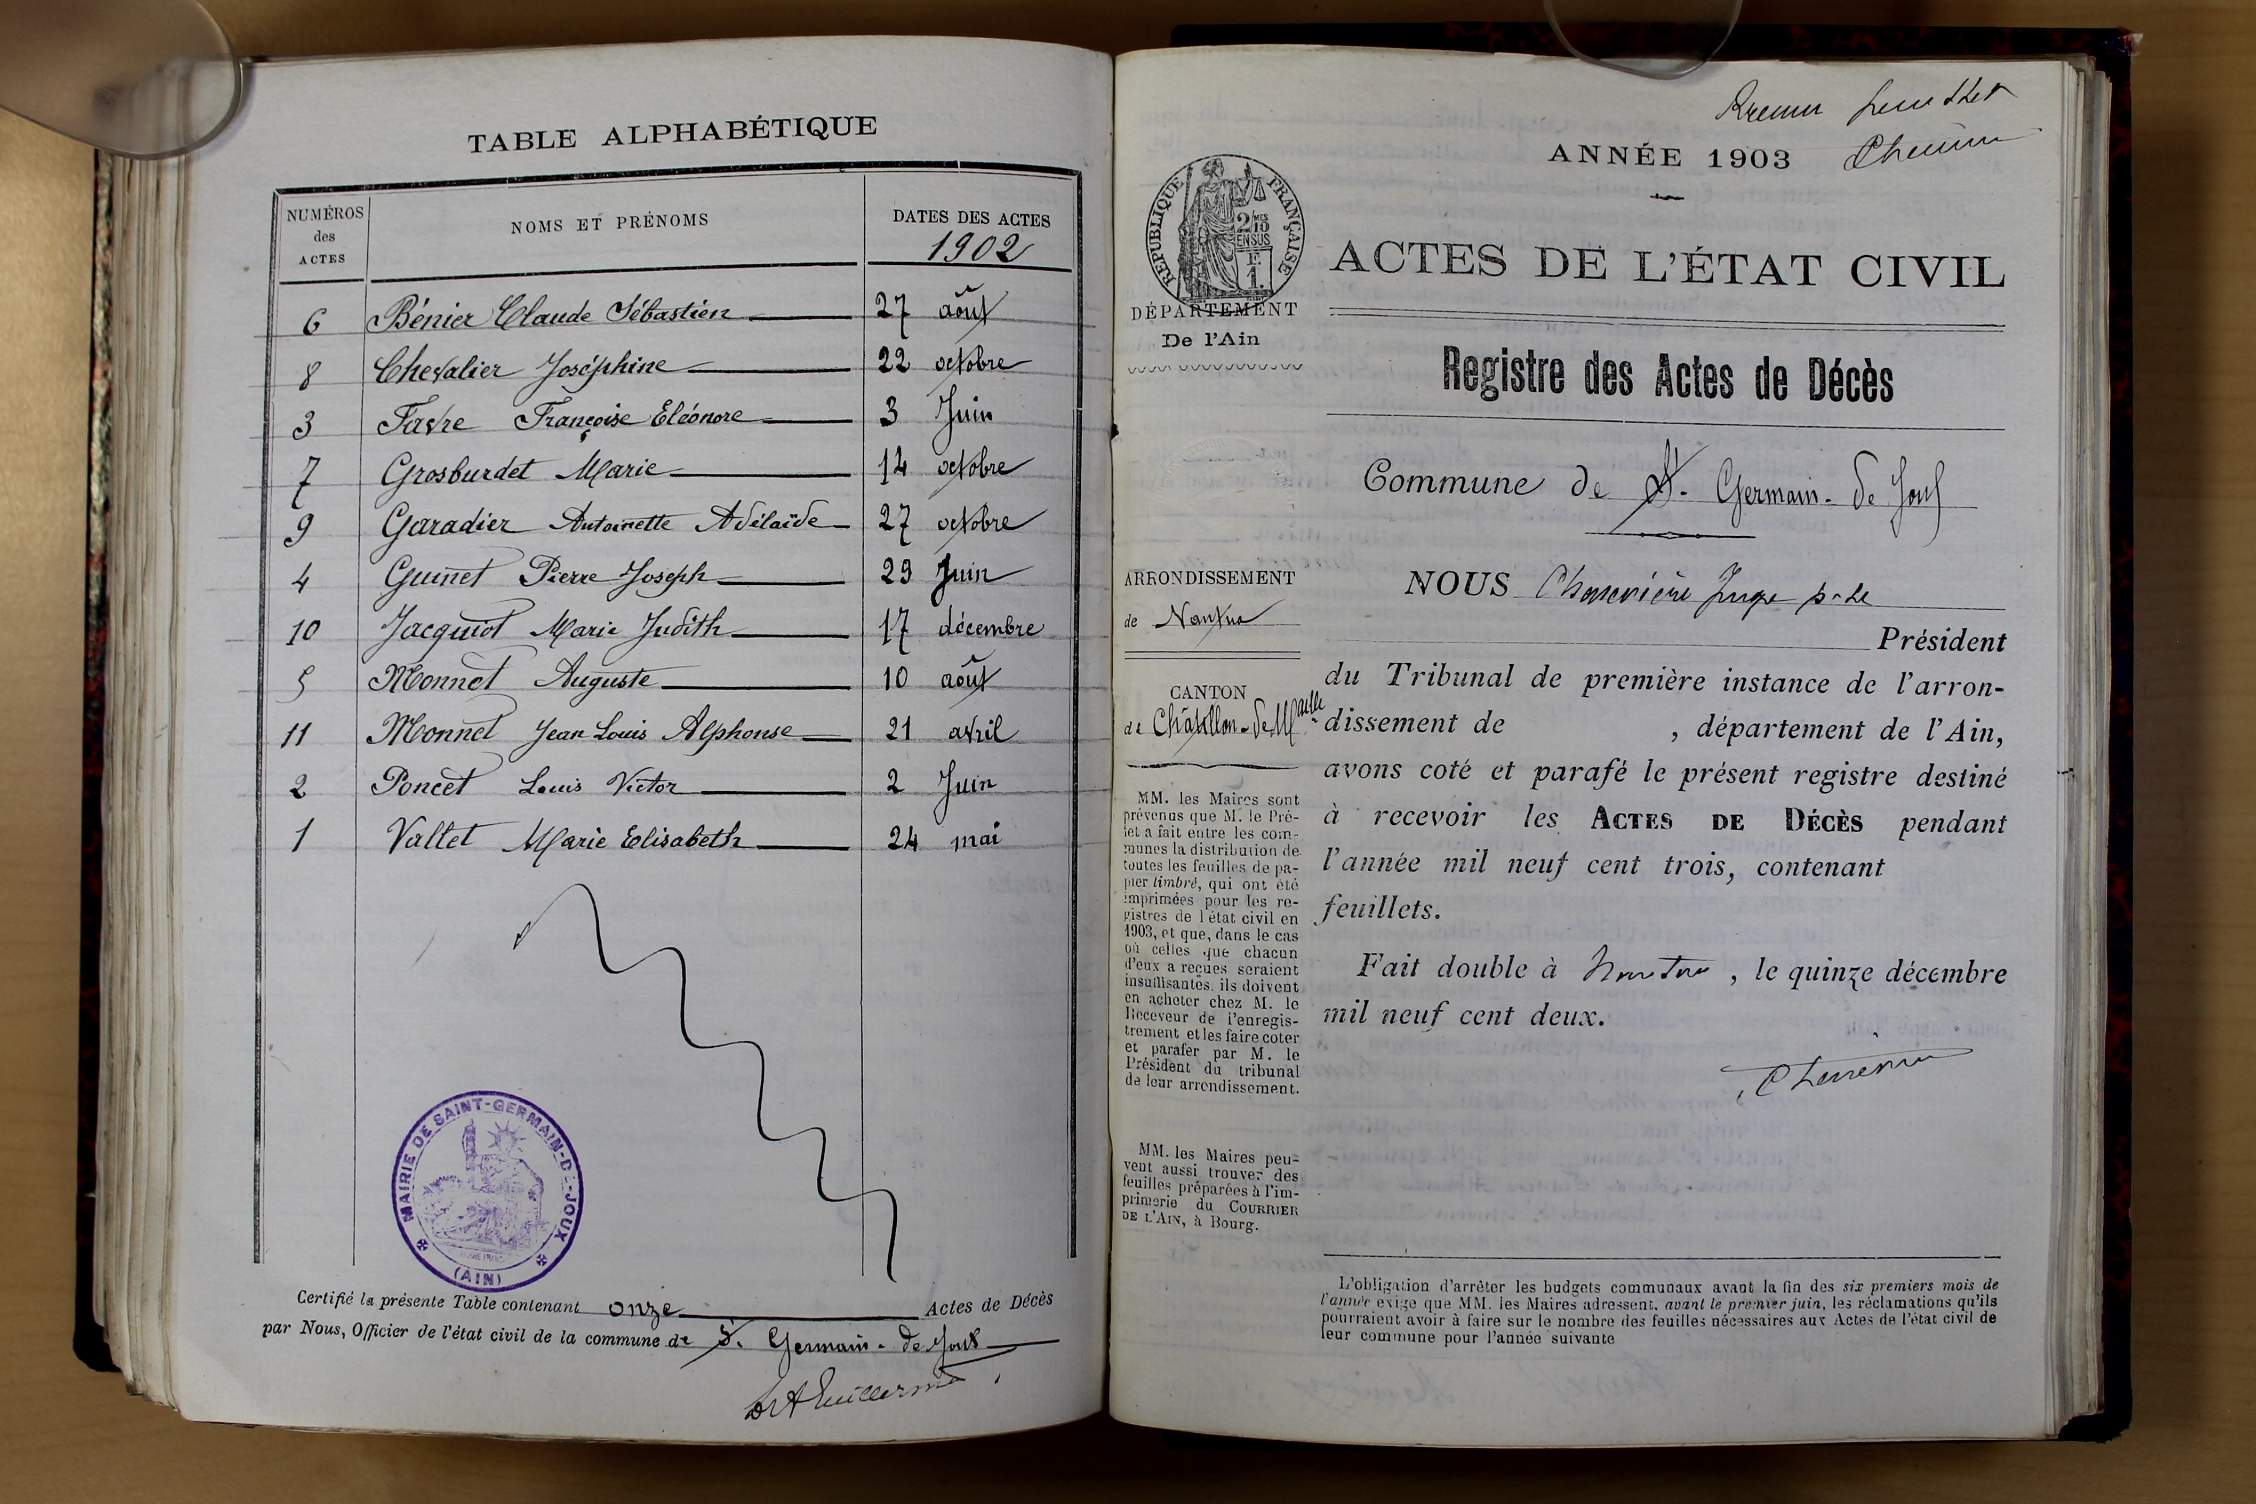 TABLE ALPHABÉTIQUE
NUMÉROS des ACTES
NOMS ET PRÉNOMS
DATES DES ACTES
1902
6 Bénier Claude Sébastien 27 août
8 Chevalier Joséphine 22 octobre
3 Favre Françoise Eléonore 3 Juin
7 Grosburdet Marie 14 octobre
9 Garadier Antoinette Adélaïde 27 octobre
4 Guinet Pierre Joseph 29 Juin
10 Jacquiot Marie Judith 17 décembre
5 Monnet Auguste 10 août
11 Monnet Jean Louis Alphonse 21 avril
2 Poncet Louis Victor 2 Juin
1 Vallet Marie Elisabeth 24 mai
MAIRIE DE SAINT-GERMAIN-DE-JOUX
(AIN)
Certifié la présente Table contenant onze Actes de Décès
par Nous, Officier de l'état civil de la commune de St. Germain-de Joux
Premier feuillet
ANNÉE 1903
RÉPUBLIQUE FRANÇAISE
2/10 EN SUS
1F.
ACTES DE L'ÉTAT CIVIL
DÉPARTEMENT
De l'Ain
Registre des Actes de Décès
Commune de St. Germain-de Joux
ARRONDISSEMENT
de Nantua
CANTON
de Châtillon-de Maille
MM. les Maires sont
prévenus que M. le Pré-
fet a fait entre les com-
munes la distribution de
toutes les feuilles de pa-
pier timbré, qui ont été
imprimées pour les re-
gistres de l'état civil en
1903, et que, dans le cas
où celles que chacun
d'eux a reçues seraient
insuffisantes, ils doivent
en acheter chez M. le
Receveur de l'enregis-
trement et les faire coter
et parafer par M. le
Président du tribunal
de leur arrondissement.
MM. les Maires peu-
vent aussi trouver des
feuilles préparées à l'im-
primerie du COURRIER
DE L'AIN, à Bourg.
NOUS Chenevière Juge
Président
du Tribunal de première instance de l'arron-
dissement de , département de l'Ain,
avons coté et parafé le présent registre destiné
à recevoir les ACTES DE DÉCÈS pendant
l'année mil neuf cent trois, contenant
feuillets.
Fait double à Nantua, le quinze décembre
mil neuf cent deux.
L'obligation d'arrêter les budgets communaux avant la fin des six premiers mois de
l'année exige que MM. les Maires adressent, avant le premier juin, les réclamations qu'ils
pourraient avoir à faire sur le nombre des feuilles nécessaires aux Actes de l'état civil de
leur commune pour l'année suivante